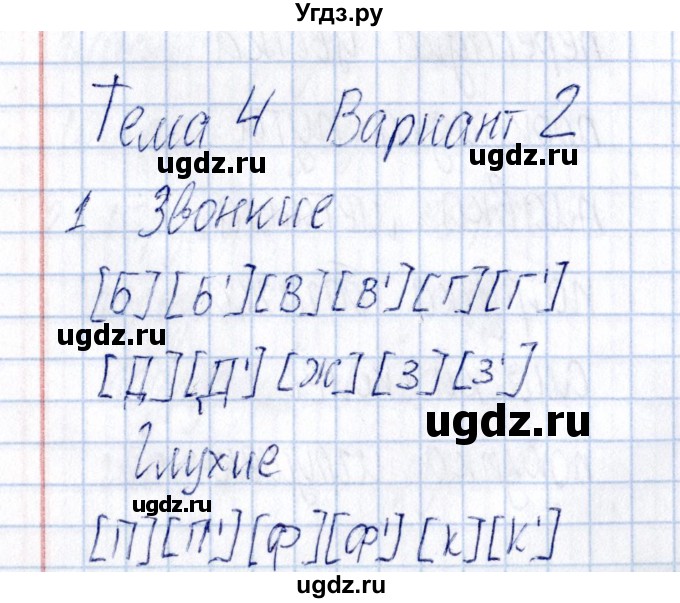 Угдз.ру
Тема 4 Вариант 2
ugdz.ru ugdz.ru
1 Звонкие
[Б][Б'][В][В'][Г][Г']
ugdz.ru
[Д][Д'][Ж][З][З']
ugdz.ru
Глухие
ugdz.ru
[П][П'][Ф][Ф'][К][К']
ugdz.ru